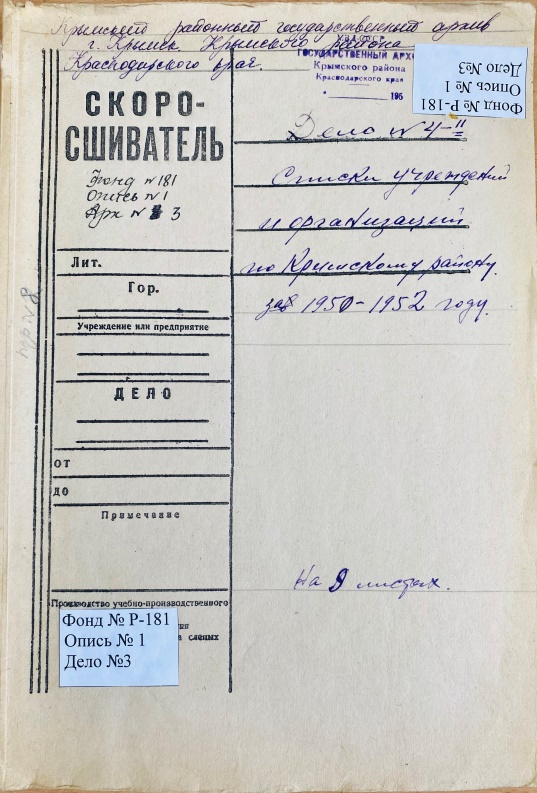 Крымский районный государственный архив
г. Крымск Крымского района
Краснодарского края.
ГОСУДАРСТВЕННЫЙ АРХ
Крымского района
Краснодарского края
195
Фонд № Р-181
Опись № 1
Дело №3
СКОРО-
СШИВАТЕЛЬ
Фонд №181
Опись №1
Арх № 3
Дело №4-"
Списки учреждений
и организаций
по Крымскому району.
за 1950-1952 году.
Лит.
Гор.
Учреждение или предприятие
ДЕЛО
ОТ
ДО
Примечание
На 9 листах.
Производство учебно-производственного
слепых
Фонд № Р-181
Опись № 1
Дело №3